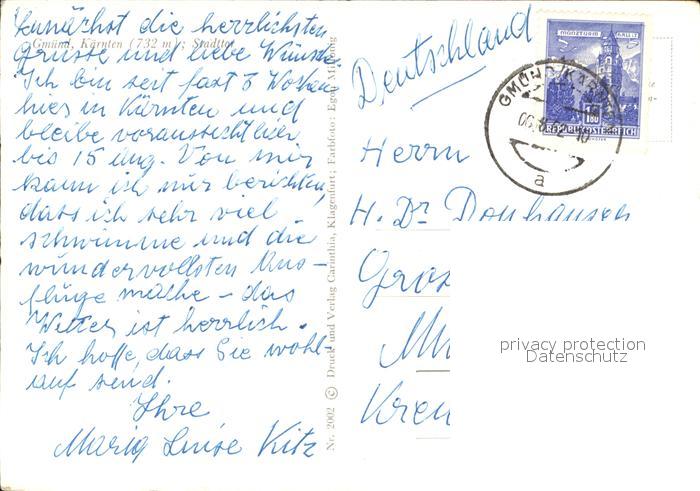 Zunächst die herrlichsten
Grüsse und liebe Wünsche.
Ich bin seit fast 3 Wochen
hier in Kärnten und
bleibe voraussichtlich
bis 15 Aug. Von mir
kann ich nur berichten,
dass ich sehr viel
schwimme und die
wundervollsten Aus-
flüge mache – das
Wetter ist herrlich.
Ich hoffe, dass Sie wohl-
auf send.
Ihre
Maria Luise Kitz
Gmünd, Kärnten (732 m); Stadttor
Nr. 2002 © Druck und Verlag Carinthia, Klagenfurt; Farbfoto: Egon
Deutschland
MÜNZTURM HALL I.T.
S 1.80 S
REPUBLIK ÖSTERREICH
GMÜND (KÄRNTEN)
a
Herrn
H. Dr
privacy protection
Datenschutz